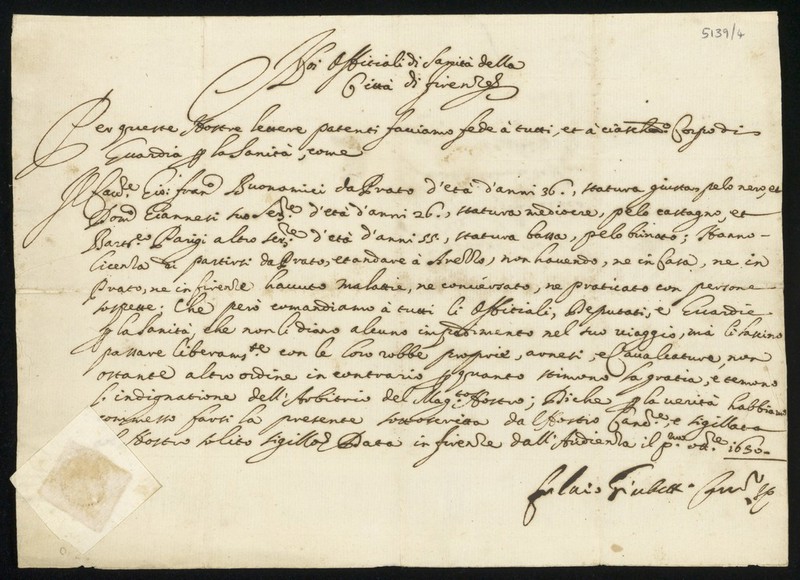 5139/4
Noi Offitiali di Sanità della
Città di firenze
Per queste Nostre lettere patenti facciamo fede à tutti, et à ciasche Corpo di
Guardia p la Sanità, come
Il Cav.re Gio: fran.o Buonamici da Prato d'età d'anni 36., statura giusta, pelo nero, et
Dom.o Giannesi suo Ser.re d'età d'anni 26., statura mediocre, pelo castagno, et
Bart.eo Parigi altro ser.re d'età d'anni 55, statura bassa, pelo ; Hanno
licenza di partirsi da Prato, et andare à Arezzo, non havendo, ne in Casa, ne in
Prato, ne in firenze havuto malattie, ne conversato, ne praticato con persone
sospette: Che però comandiamo à tutti li Offitiali, Deputati, e Guardie
p la Sanità, che non li diano alcuno impedimento nel suo viaggio, mà li lassino
passare liberam.te con le loro robbe proprie, arnesi, e Cavalcature, non
ostante altro ordine in contrario p quanto stimono la gratia, e temono
l'indignatione dell'Arbitrio del Mag.to Nostro; et che p la verità habbiamo
commesso farsi la presente sottoscritta dal Nostro Canc.re, e sigillata
Nostro solito sigillo Data in firenze dall'Audienza il p.mo 1630
fulvio Giubetti Canc.re